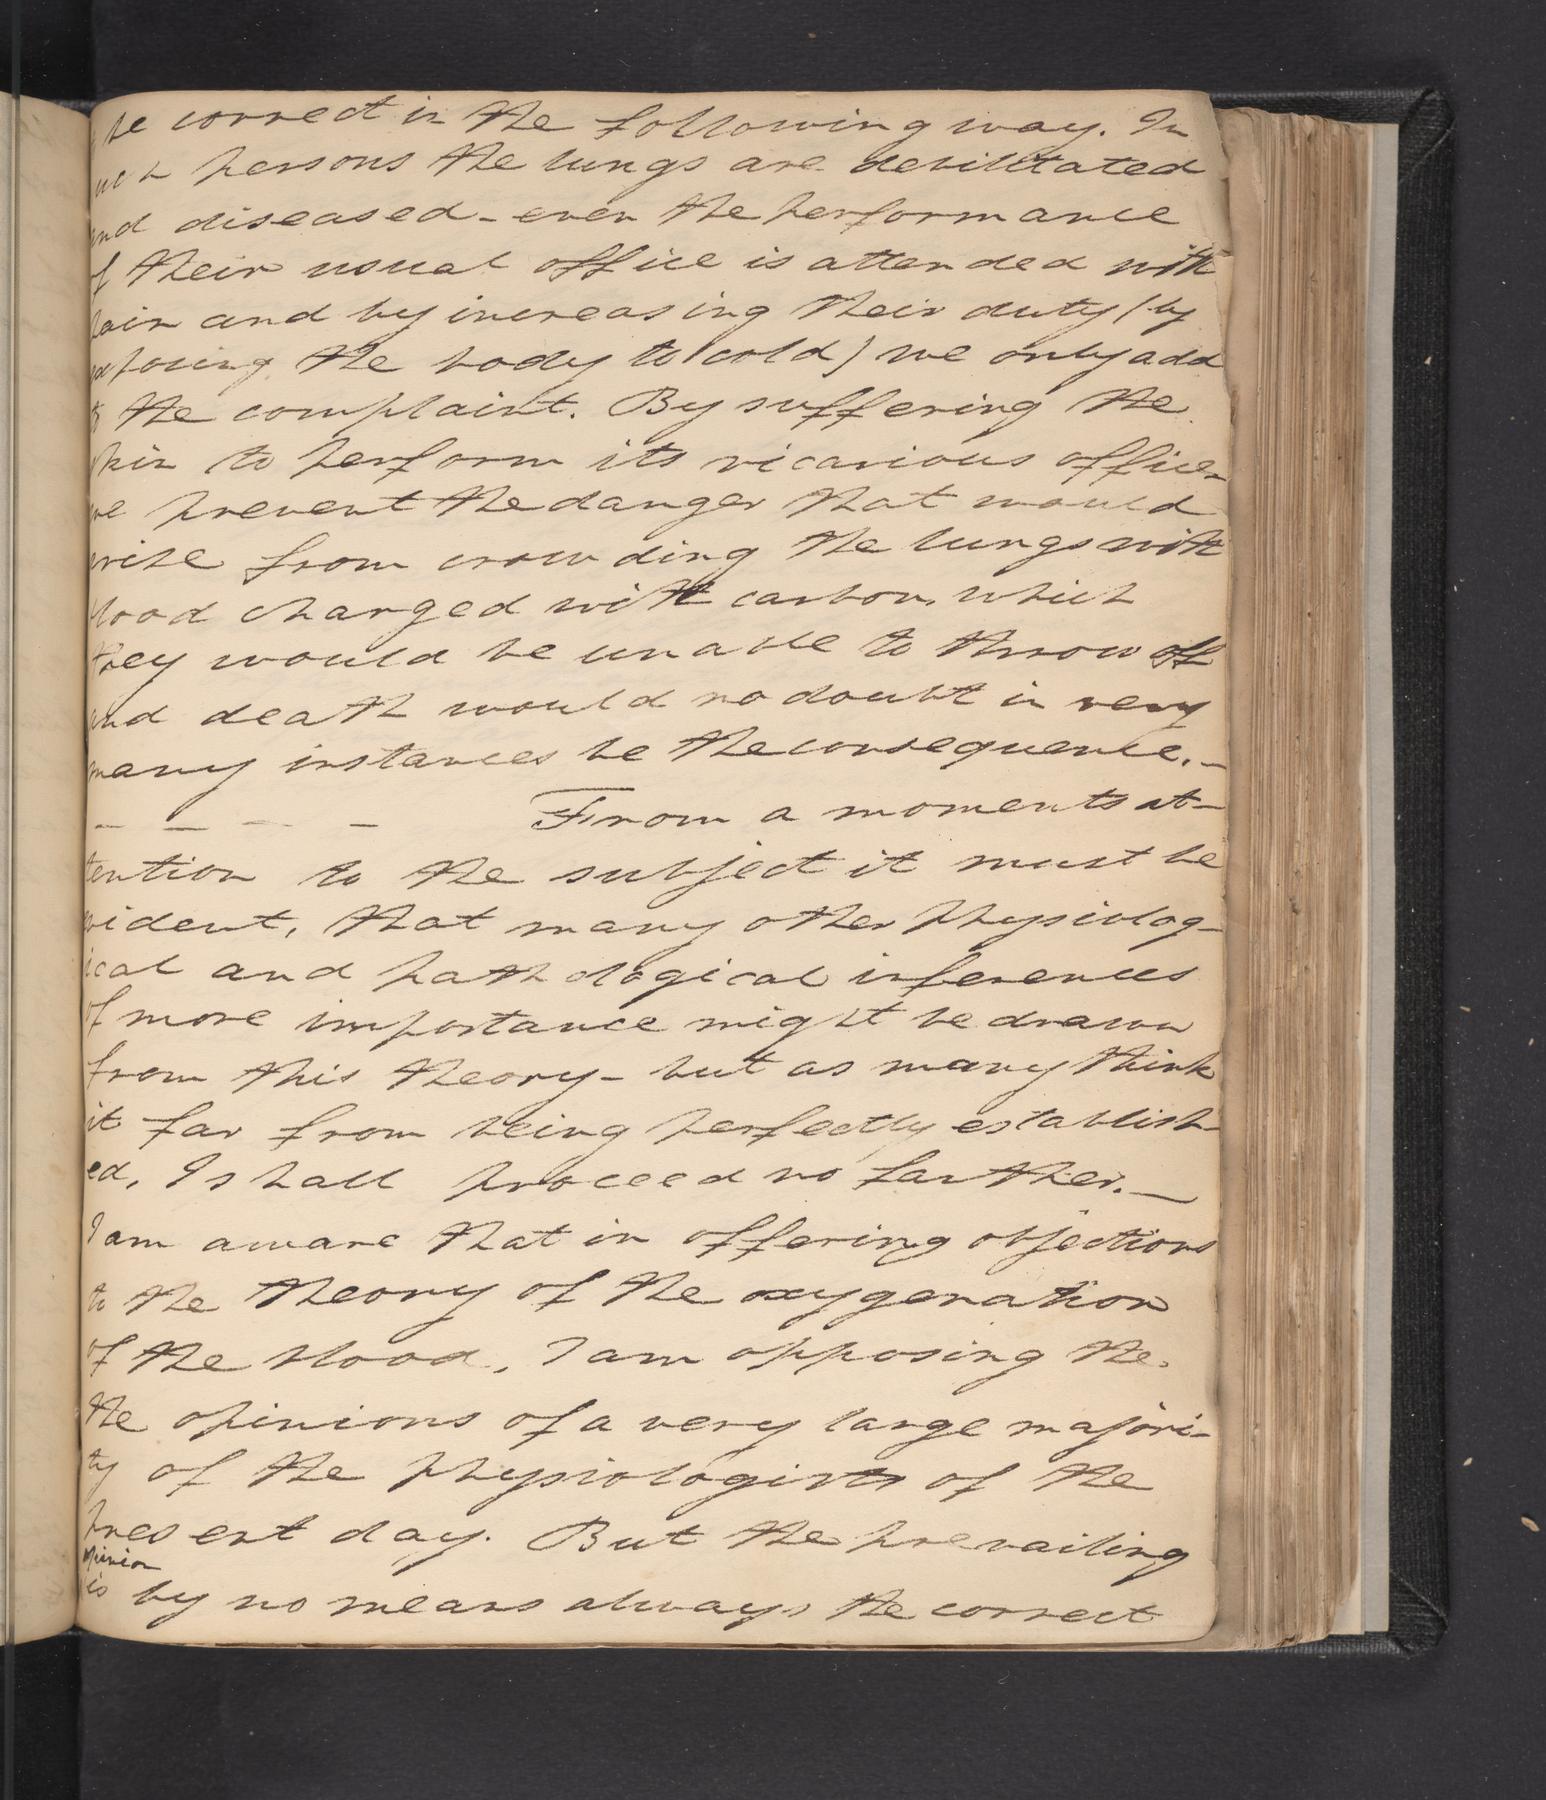 be correct in the following way. In
such persons the lungs are debilitated
and diseased - even the performance
of their usual office is attended with
pain and by increasing their duty (by
exposing the body to cold) we only add
to the complaint. By suffering the
skin to perform its vicarious office
we prevent the danger that would
arise from crowding the lungs with
blood charged with carbon, which
they would be unable to throw off
and death would no doubt in very
many instances be the consequence. -
- - - - From a moments at-
tention to the subject it must be
evident, that many other physiolog-
ical and pathological inferences
of more importance might be drawn
from this theory - but as many think
it far from being perfectly establish-
ed, I shall proceed no farther. -
I am aware that in offering objections
to the theory of the oxygenation
of the blood, I am opposing the
the opinions of a very large majori-
ty of the physiologists of the
present day. But the prevailing
opinion
is by no means always the correct